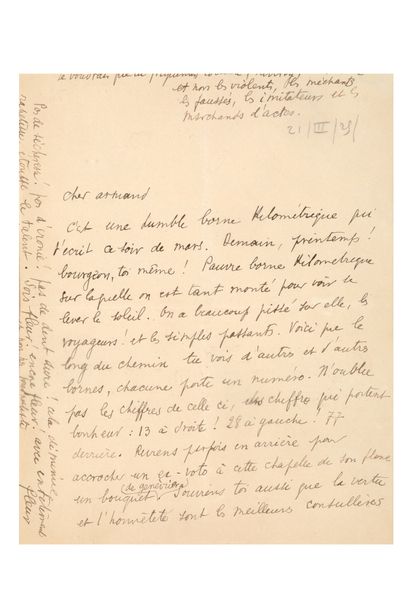 et non les violents, les méchants
les faussés, les imitateurs et les
marchands d'actes.
21/III/29/
cher armand
C'est une humble borne Kilométrique qui
t'écrit ce soir de mars. Demain, printemps!
bourgeon, toi même! Pauvre borne Kilometrique
sur laquelle on est tant monté pour voir se
lever le soleil. On a beaucoup pissé sur elle, les
voyageurs et les simples passants. Voici que le
long du chemin tu vois d'autres et d'autres
bornes, chacune porte un numéro. N'oublie
pas les chiffres de celle ci, chiffres qui portent
bonheur: 13 à droite! 28 à gauche! 77
derrière. Reviens parfois en arrière pour
accrocher un ex-voto à cette chapelle de son flanc
un bouquet de genévrier. Souviens toi aussi que la vertu
et l'honnêteté sont les meilleurs conseillères
Pas de sécheresse! pas d'ironie! pas de dent dure! cela diminue
étouffe le talent. Sois fleur! encore fleur! avec
fleur